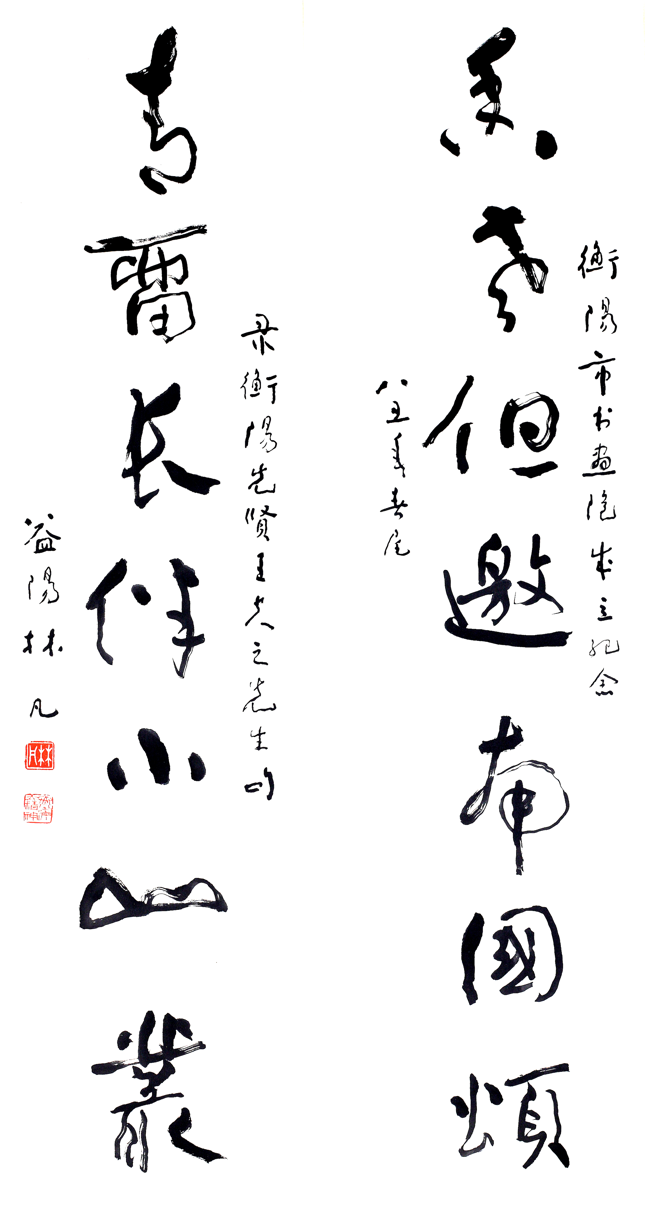 衡陽市书畫院成立紀念
香老但邀南國頌
八五年春尾
录衡陽先賢王夫之先生句
青留長伴小山叢
益陽林凡
林凡